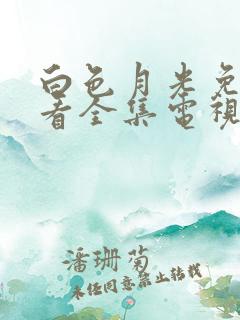 白色月光免
看全集電視
潘珊菊
未经同意禁止转载